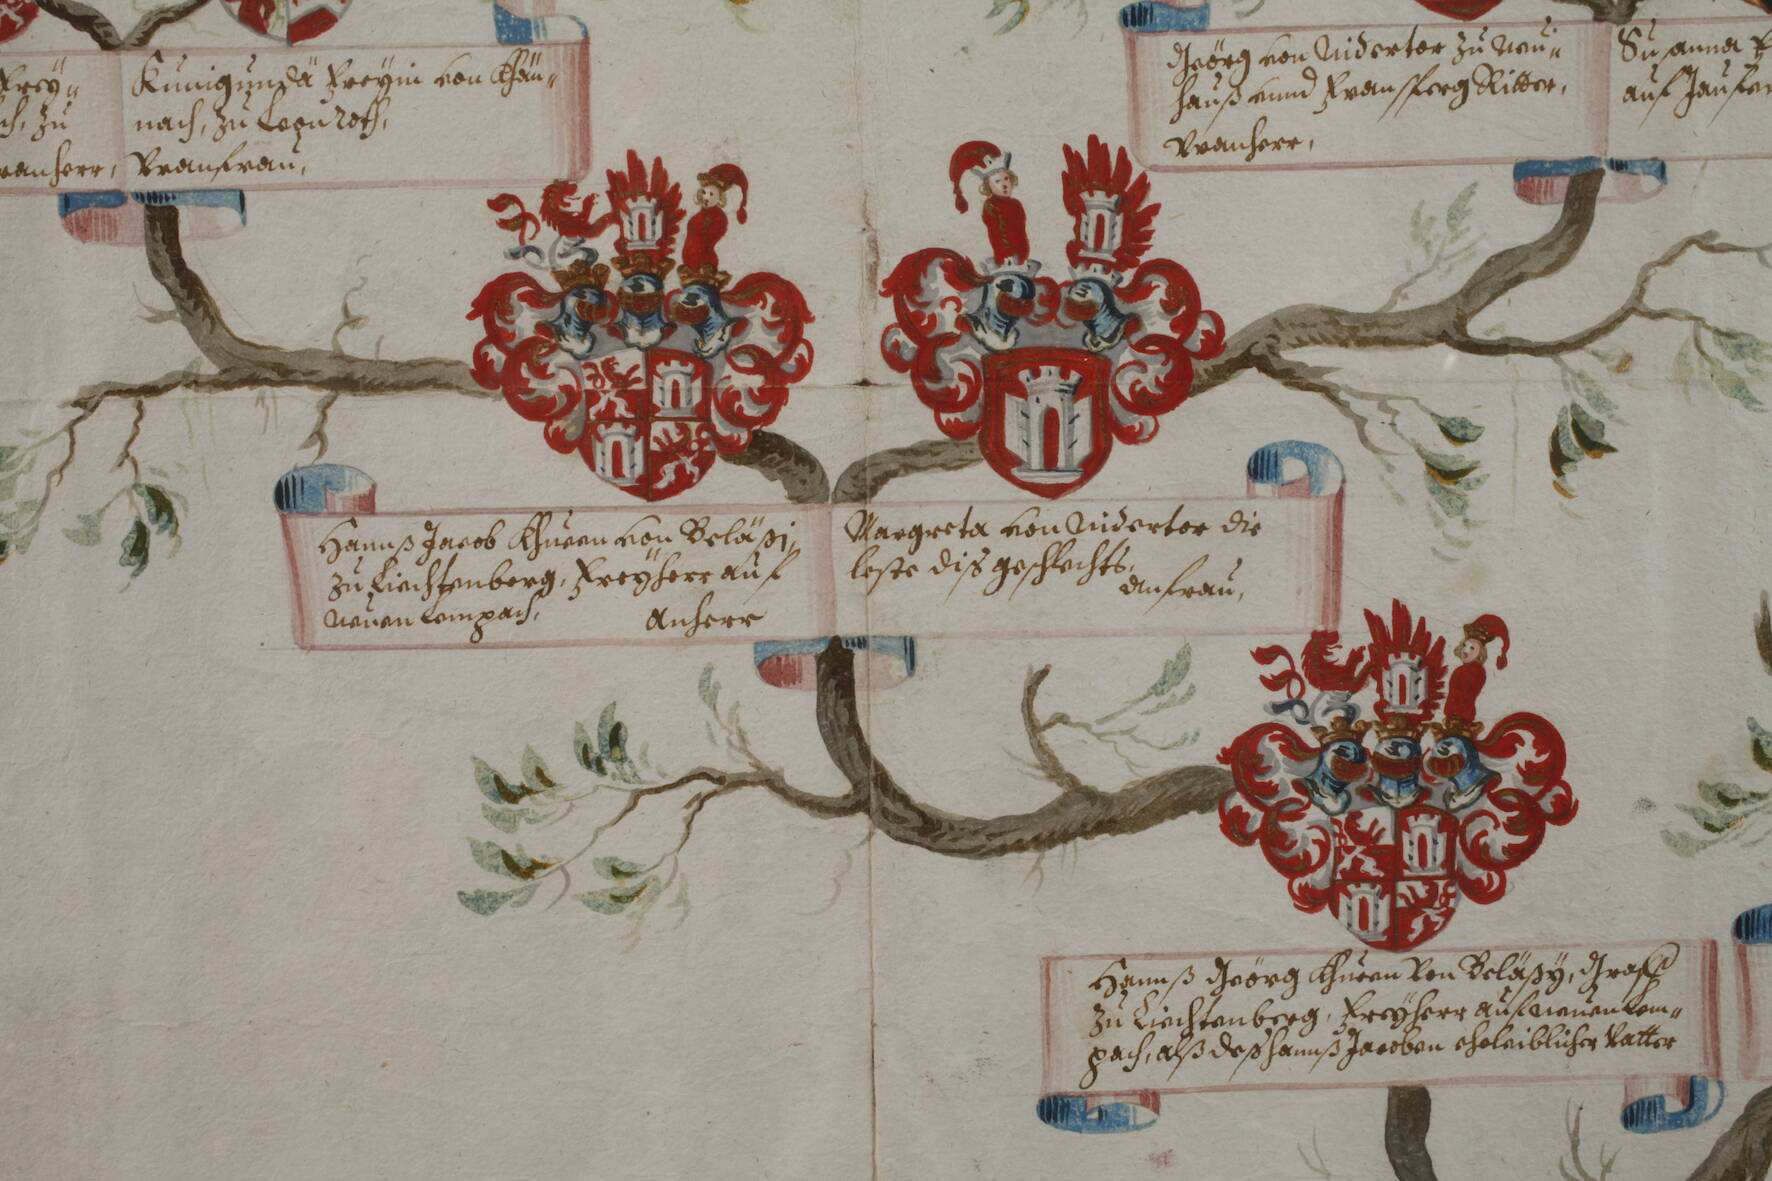 Frey-
ch, zu
ranherr,
Kunigundä Freyin von Khün-
nach, zu
Vranfrau,
Geörg von Nidertor zu Neu-
hauß vnnd Ritter,
Vranherr,
Susanna F
auf
Hannß Jacob Khuen von Beläßi,
zu Liechtenberg, Freyherr auf
Neuen Lempach, Anherr
Margreta von Nidertor die
leste diß geschlechts,
Anfrau,
Hannß Geörg Khuen Von Beläßy, Graff
zu Liechtenberg, Freyherr auf Neuen Lem-
pach, alß deß Hannß Jacoben eheleiblicher Vatter